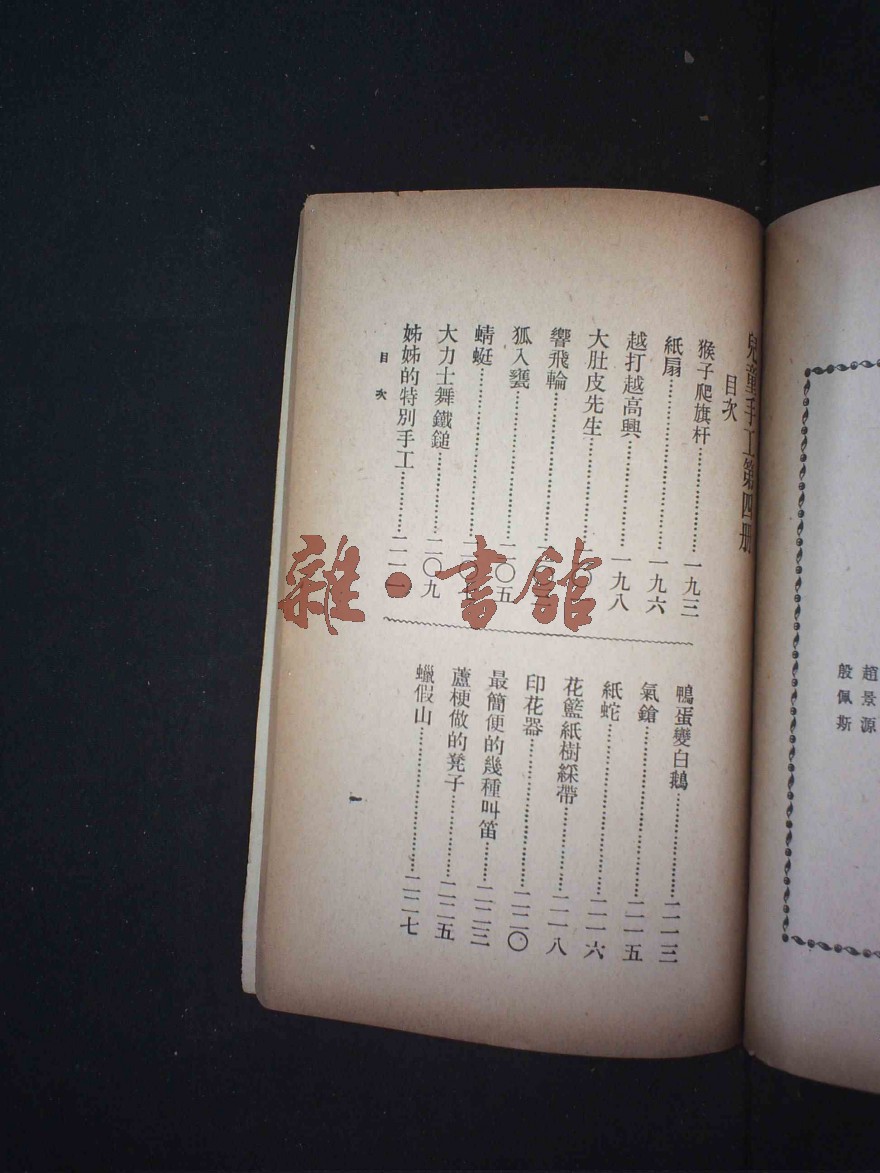 趙景源
殷佩斯
兒童手工第四册
目次
猴子爬旗杆…………一九三
紙扇…………一九六
越打越高興…………一九八
大肚皮先生…………二〇
響飛輪…………二〇
狐入甕…………二〇五
蜻蜓…………二〇
大力士舞鐵鎚…………二〇九
姊姊的特別手工…………二一一
鴨蛋變白鵝…………二一三
氣鎗…………二一五
紙蛇…………二一六
花籃紙樹綵帶…………二一八
印花器…………二二〇
最簡便的幾種叫笛…………二二三
蘆梗做的凳子…………二二五
蠟假山…………二二七
目次
一
雜·書館